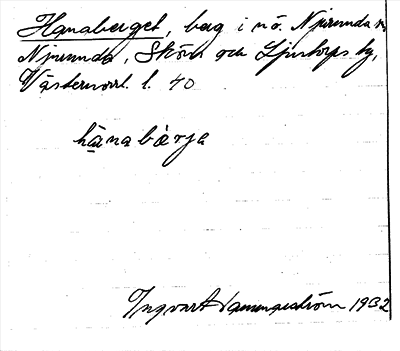 Hanaberget, berg i nö. Njurunda sn,
Njurunda, Sköns och Ljustorps tg,
Västernorrl. l. 40
hànabàrja
Ingvart Hemmingström 1932